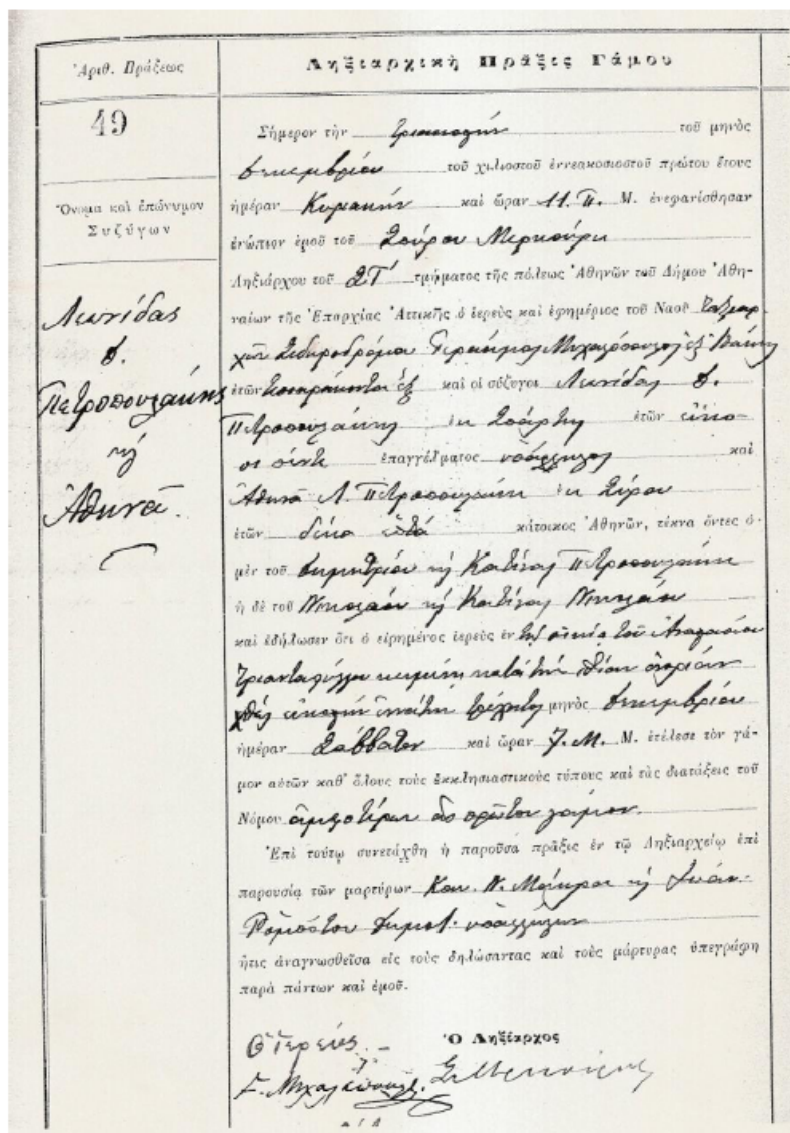 Ἀριθ. Πράξεως
Ληξιαρχικὴ Πρᾶξις Γάμου
49
Ὄνομα καὶ ἐπώνυμον
Συζύγων
Λεωνίδας
Δ.
Πετροπουλάκης
καὶ
Ἀθηνᾶ.
Σήμερον τὴν τριακοστὴν τοῦ μηνὸς
Δεκεμβρίου τοῦ χιλιοστοῦ ἐννεακοσιοστοῦ πρώτου ἔτους
ἡμέραν Κυριακὴν καὶ ὥραν 11. Π. Μ. ἐνεφανίσθησαν
ἐνώπιον ἐμοῦ τοῦ Σπύρου Μερκούρη
Ληξιάρχου τοῦ ΣΤ' τμήματος τῆς πόλεως Ἀθηνῶν τοῦ Δήμου Ἀθη-
ναίων τῆς Ἐπαρχίας Ἀττικῆς ὁ ἱερεὺς καὶ ἐφημέριος τοῦ Ναοῦ Ταξιαρ-
χῶν Σιδηροδρόμου Γεράσιμος Μιχαλόπουλος ἐξ
ἐτῶν τεσσαράκοντα ἓξ καὶ οἱ σύζυγοι Λεωνίδας Δ.
Πετροπουλάκης ἐκ Σπάρτης ἐτῶν εἴκο-
σι πέντε ἐπαγγέλματος ὑπάλληλος καὶ
Ἀθηνᾶ Λ. Πετροπουλάκη ἐκ Σύρου
ἐτῶν δέκα ἑπτὰ κάτοικος Ἀθηνῶν, τέκνα ὄντες ὁ
μὲν τοῦ Δημητρίου καὶ Κατίνας Πετροπουλάκη
ἡ δὲ τοῦ Νικολάου καὶ Κατίνας Νικολάου
καὶ ἐδήλωσεν ὅτι ὁ εἰρημένος ἱερεὺς ἐν τῇ οἰκίᾳ τοῦ Ἀθανασίου
Τριανταφύλλου κειμένῃ κατὰ τὴν
χθὲς εἰκοστὴν ἐννάτην τρέχοντος μηνὸς Δεκεμβρίου
ἡμέραν Σάββατον καὶ ὥραν 7. Μ. Μ. ἐτέλεσε τὸν γά-
μον αὐτῶν καθ' ὅλους τοὺς ἐκκλησιαστικοὺς τύπους καὶ τὰς διατάξεις τοῦ
Νόμου ἀμφοτέρων εἰς πρῶτον γάμον.
Ἐπὶ τούτῳ συνετάχθη ἡ παροῦσα πρᾶξις ἐν τῷ Ληξιαρχείῳ ἐπὶ
παρουσίᾳ τῶν μαρτύρων Κων. Ν. Μάκρα καὶ Ἰωάν.
Δημοτ. ὑπαλλήλων
ἥτις ἀναγνωσθεῖσα εἰς τοὺς δηλώσαντας καὶ τοὺς μάρτυρας ὑπεγράφη
παρὰ πάντων καὶ ἐμοῦ.
Ὁ Ἱερεύς Ὁ Ληξίαρχος
Γ. Μιχαλόπουλος. Σ. Μερκούρης